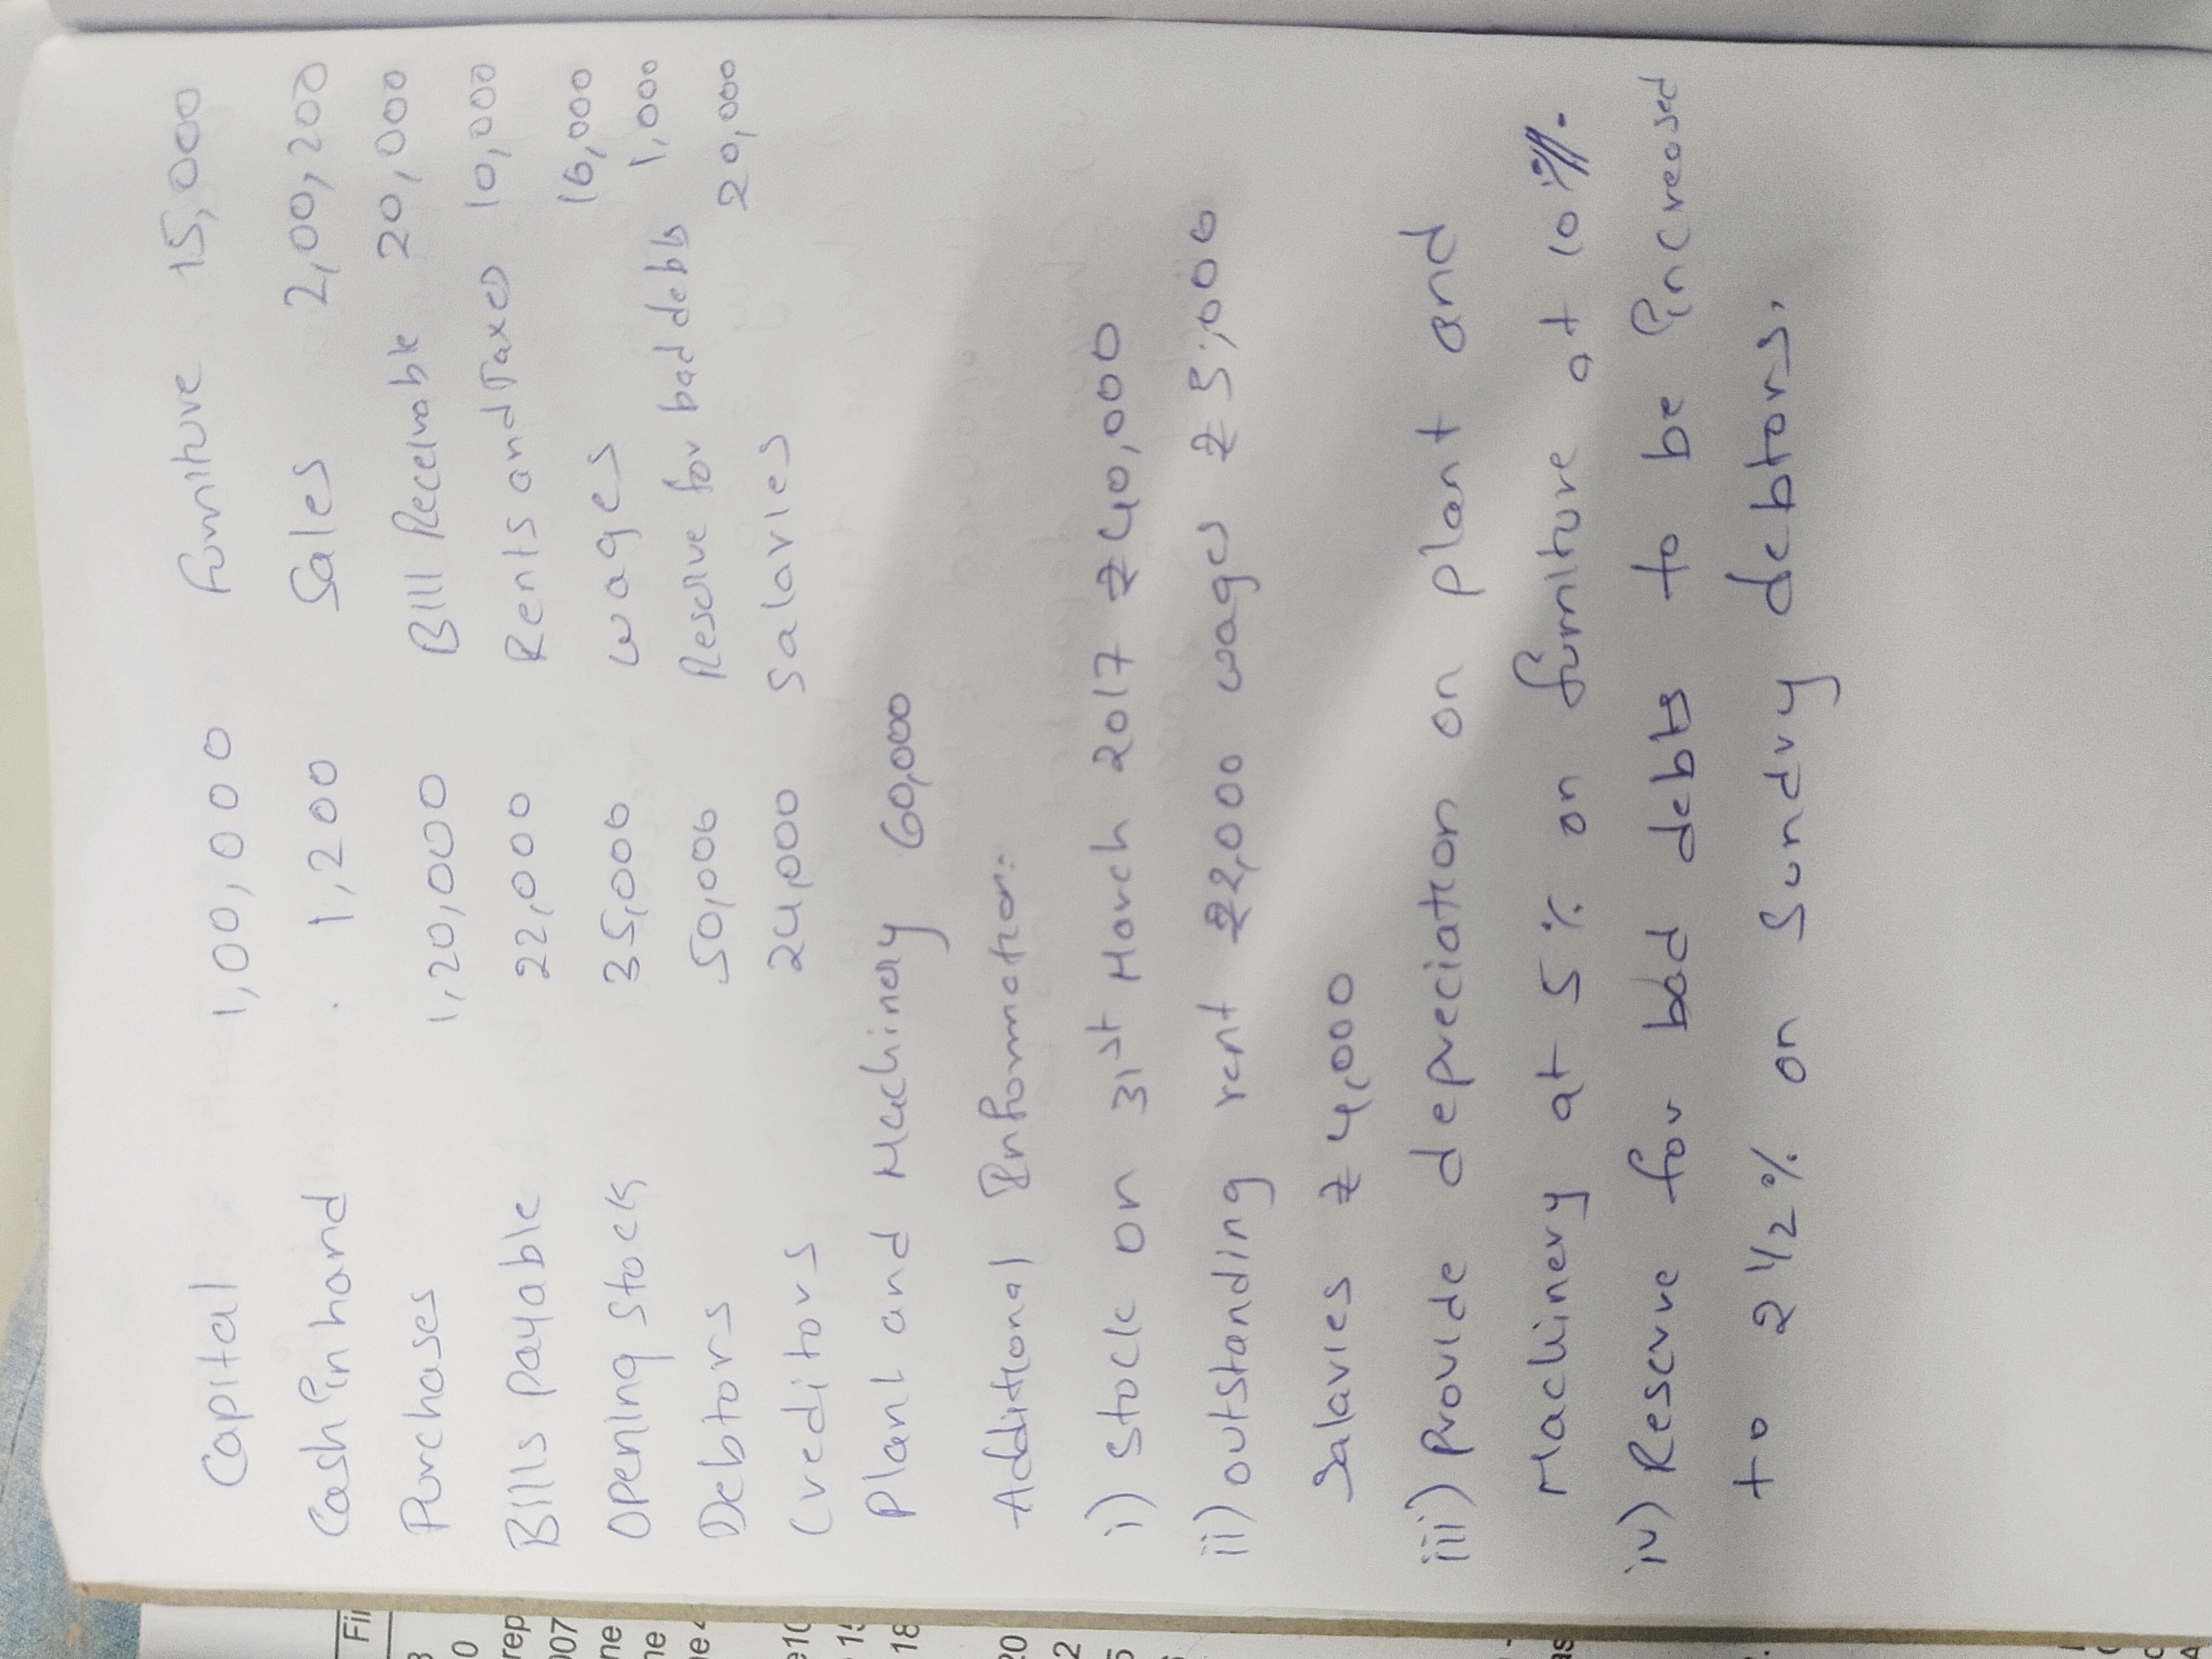 Capital 1,00,000 Furniture 15,000
Cash in hand 1,200 Sales 2,00,200
Purchases 1,20,000 Bill Receivable 20,000
Bills Payable 22,000 Rents and Taxes 10,000
Opening Stock 35,000 Wages 16,000
Debtors 50,000 Reserve for bad debts 1,000
Creditors 24,000 Salaries 20,000
Plant and Machinery 60,000
Additional Information:
i) Stock on 31st March 2017 ₹ 40,000
ii) outstanding rent ₹2,000 wages ₹ 5,000
Salaries ₹ 4,000
iii) Provide depreciation on plant and
Machinery at 5 % on furniture at 10 %.
iv) Reserve for bad debts to be increased
to 2 1/2 % on Sundry debtors.
Fin
0
rep
007
me
18
20
2